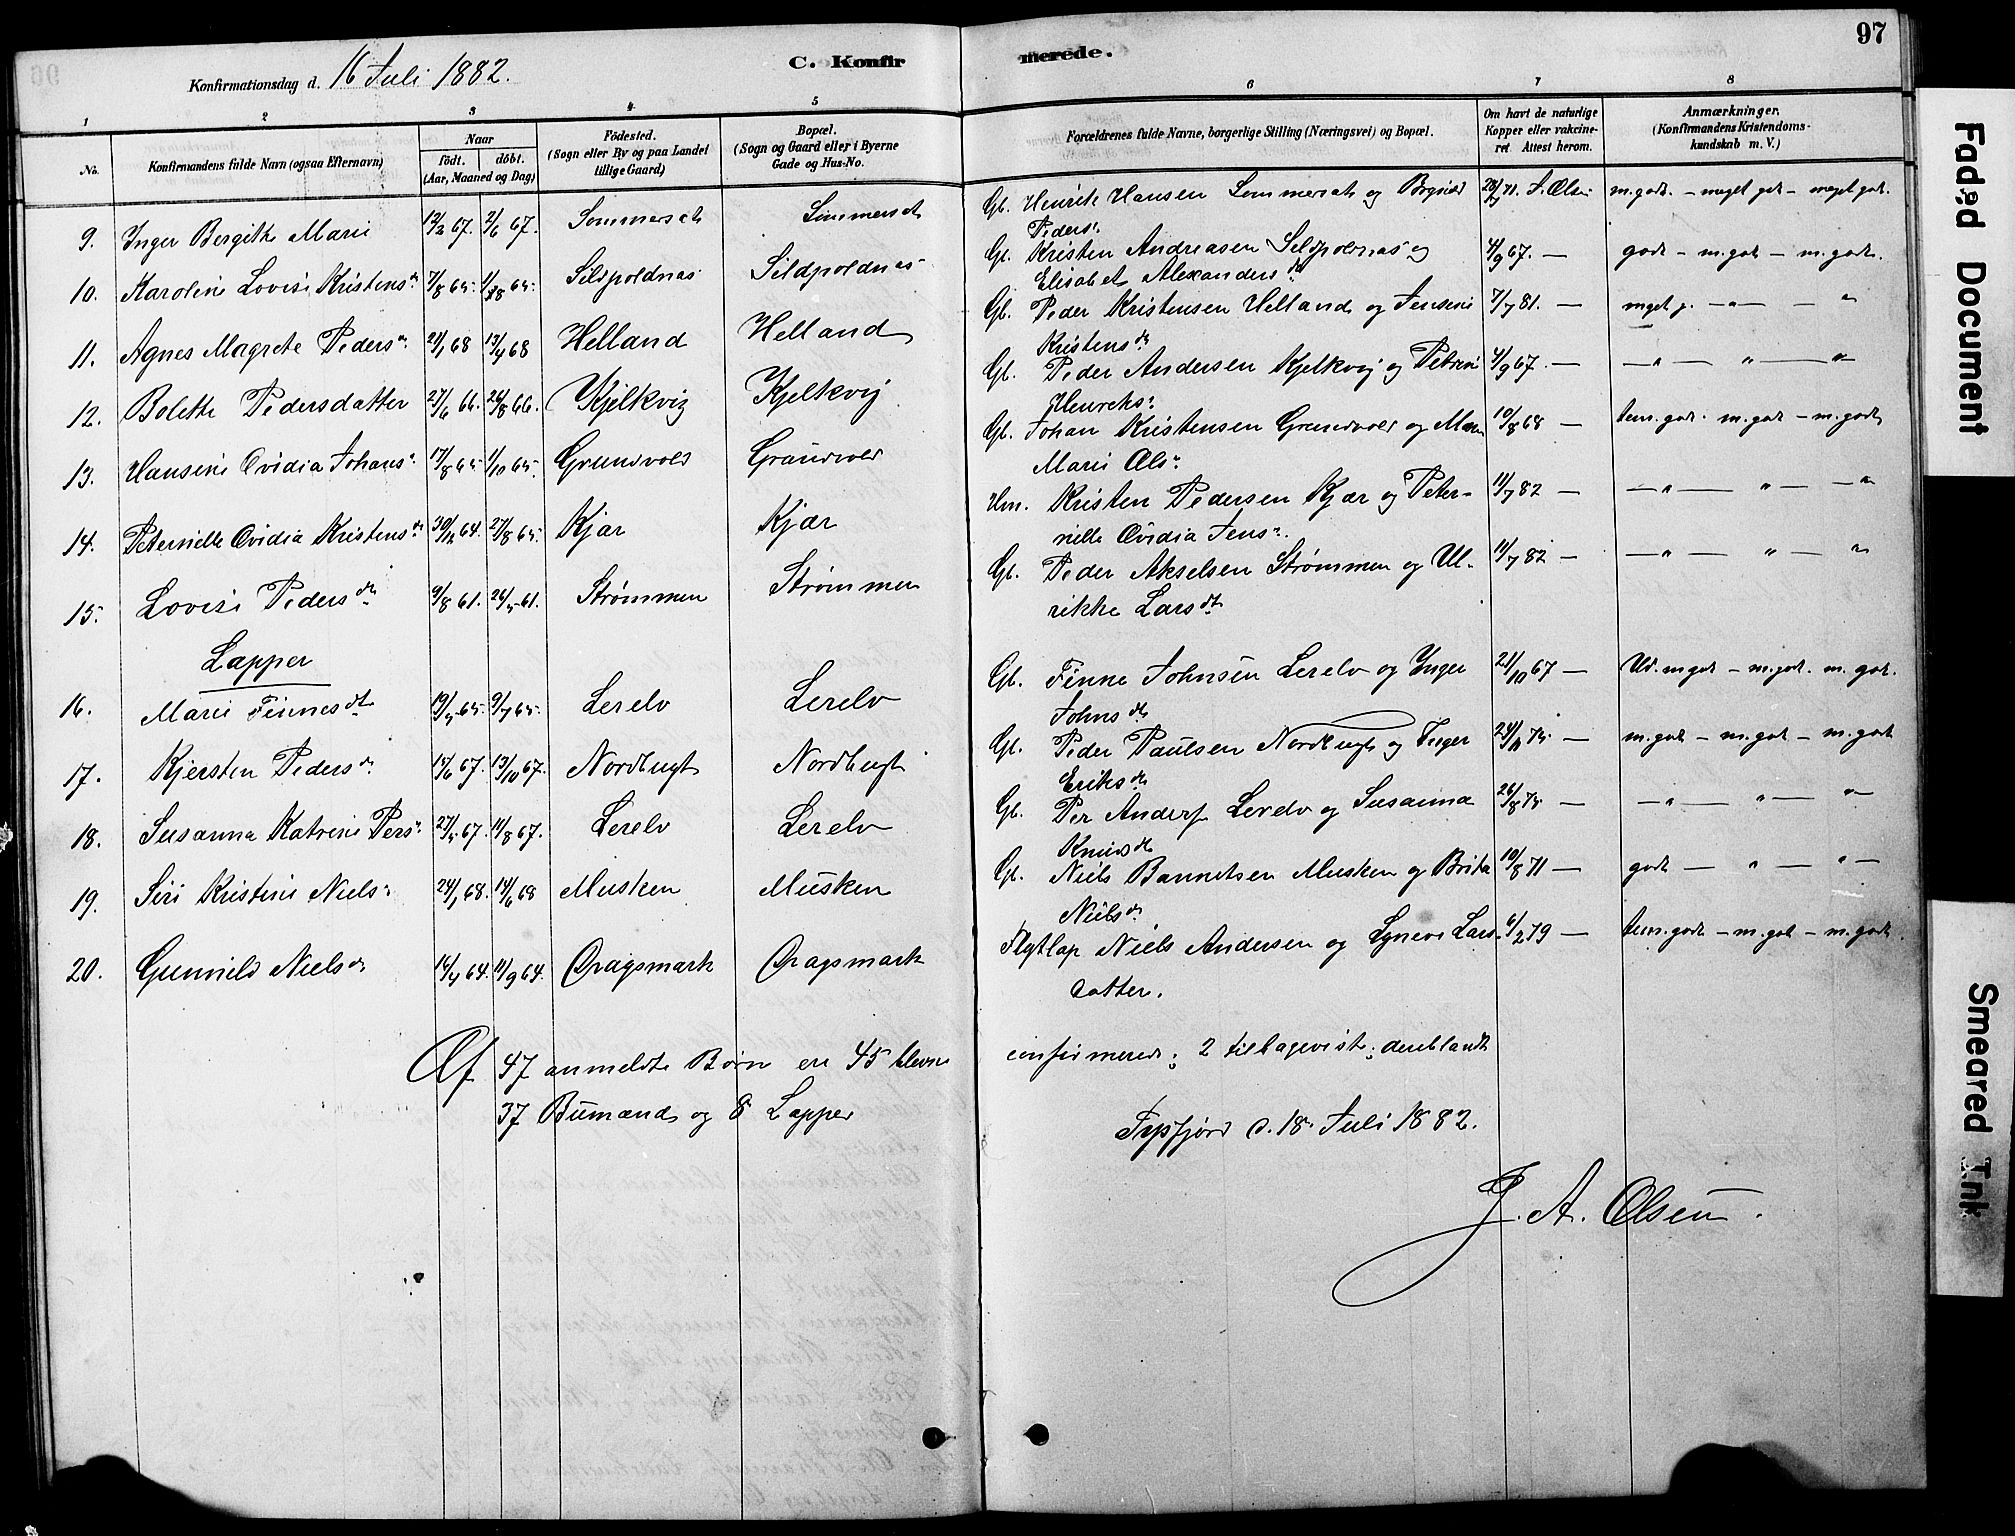 97
Konfirmationsdag d. 16 Juli 1882.
C. Konfirmerede.
1 2 3 4 5 6 7 8
No.
Konfirmandens fulde Navn (ogsaa Efternavn)
Naar
födt. döbt.
(Aar, Maaned og Dag)
Födested.
(Sogn eller By og paa Landet
tillige Gaard)
Bopæl.
(Sogn og Gaard eller i Byerne
Gade og Hus-No.
Forældrenes fulde Navne, borgerlige Stilling (Næringsvei) og Bopæl.
Om havt de naturlige
Kopper eller vakcine-
ret Attest herom.
Anmærkninger.
(Konfirmandens Kristendoms-
kundskab m. V.)
9. Inger Bergitte Marie 12/2 67. 2/6 67. Sommerset Sommerset Gb. Henrik Hansen Sommerset og 28/7 71. J. Olsen m.godt. - meget godt - meget godt.
Peders.
10. Karoline Lovise Kristensdr 7/8 65. 65. Sildpoldnæs Sildpoldnæs Gb. Kristen Andreasen Sildpoldnæs og 4/9 67. — godt - m.godt - m.godt.
Elisabet Alexandersdt
11. Agnes Magrete Pedersdr 21/1 68 13/4 68 Helland Helland Gb. Peder Kristensen Helland og Jensine 7/7 81. — meget g. - " - "
Kristensdt
12. Bolette Pedersdatter 27/6 66. 26/8 66. Kjelkvig Kjelkvig Gb. Peder Andersen Kjelkvig og Petrine 4/9 67. — — " — " — "
Henriks.
13. Hansine Ovidia Johans. 17/8 65. 1/10 65. Grundvold Grundvold Gb. Johan Kristensen Grundvold og 10/8 68 — tem.godt. m.godt - m.godt
Marie Ols.
14. Peternelle Ovidia Kristensdr 30/12 64. 27/8 65. Kjær Kjær Hm. Kristen Pedersen Kjær og Peter- 11/7 82 — — " — " — "
nelle Ovidia Jens.
15. Lovise Pedersdtr 9/8 61. 26/5 61. Strømmen Strømmen Gb. Peder Akselsen Strømmen og Ul- 11/7 82 — — " — " — "
rikke Larsdt
Lapper
16. Marie Finnesdt 19/5 65. 9/7 65. Lerelv Lerelv Gb. Finne Johnsen Lerelv og Inger 21/10 67 — Ud. m.godt - m.godt. m.godt.
Johnsdt
17. Kjersten Pedersdr 14/6 67. 13/10 67. Nordbugt Nordbugt Gb. Peder Paulsen Nordbugt og Inger 75. — m.godt - m.godt - m.godt
Eriksdt
18. Susanna Katrine Pers. 27/5 67. 11/8 67. Lerelv Lerelv Gb. Per Anders. Lerelv og Susanna 26/8 75 — — " — " — "
Knudsdt
19. Siri Kristine Niels. 24/1 68. 14/6 68 Musken Musken Gb. Niels Bannetsen Musken og Brita 10/8 71 — godt — " — " —
Nielsdr
20. Gunnild Nielsdr 14/4 64. 11/9 64. Dragsmark Dragsmark Flytlap Niels Andersen og Lars- 6/2 79 — tem.godt - m.godt - m.godt.
datter.
Af 47 anmeldte Børn ere 45 blevne confirmerede; 2 tilbageviste; deriblandt
37 Bumænd og 8 Lapper
Tysfjord d. 18. Juli 1882.
J. A. Olsen.
Faded Document
Smeared Ink